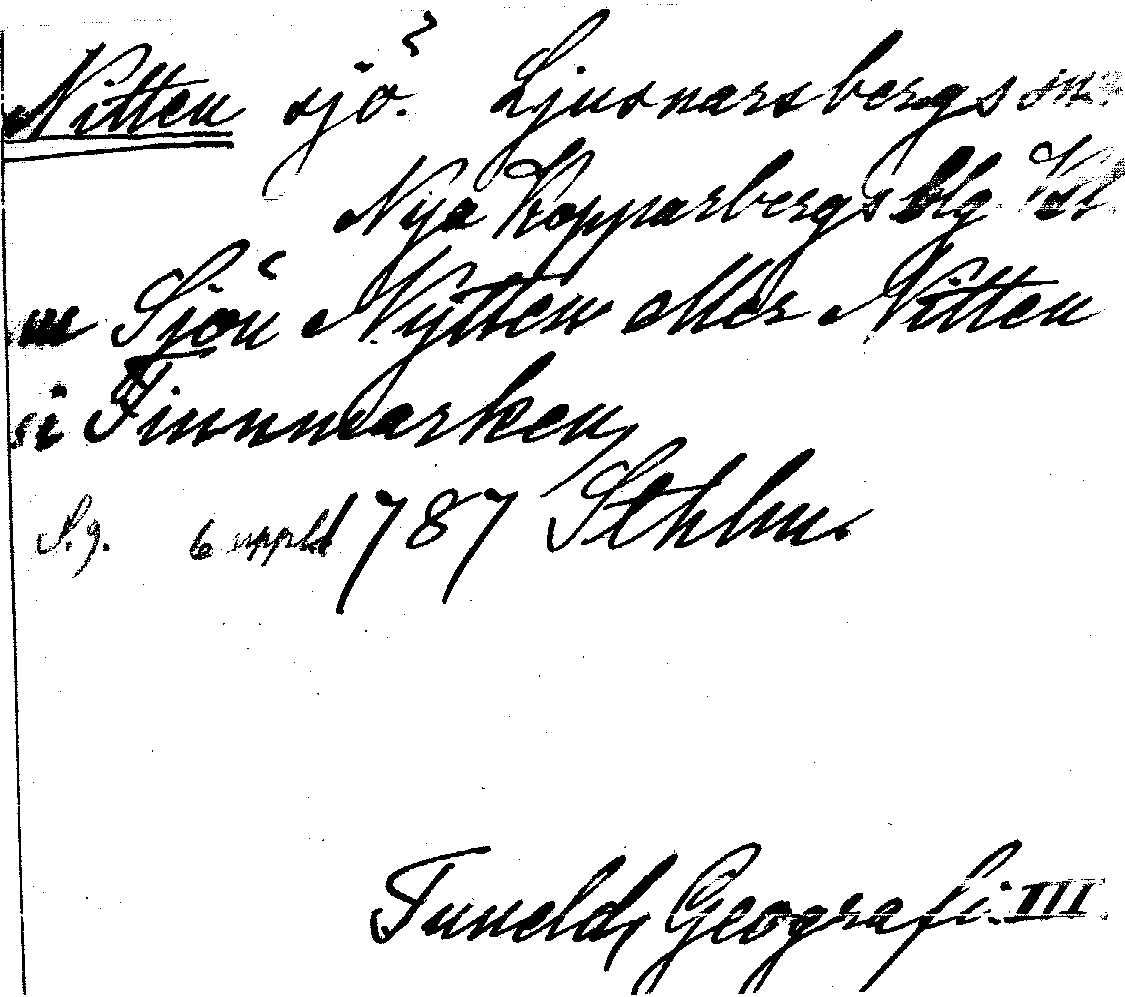 Nitten sjö. Ljusnarsbergs sn.
Nya Kopparbergs blg
Sjön Nytten eller Nitten
i Finnmarken
S. g. 6 uppl. 1787 Sthlm.
Tuneld, Geografi. III.